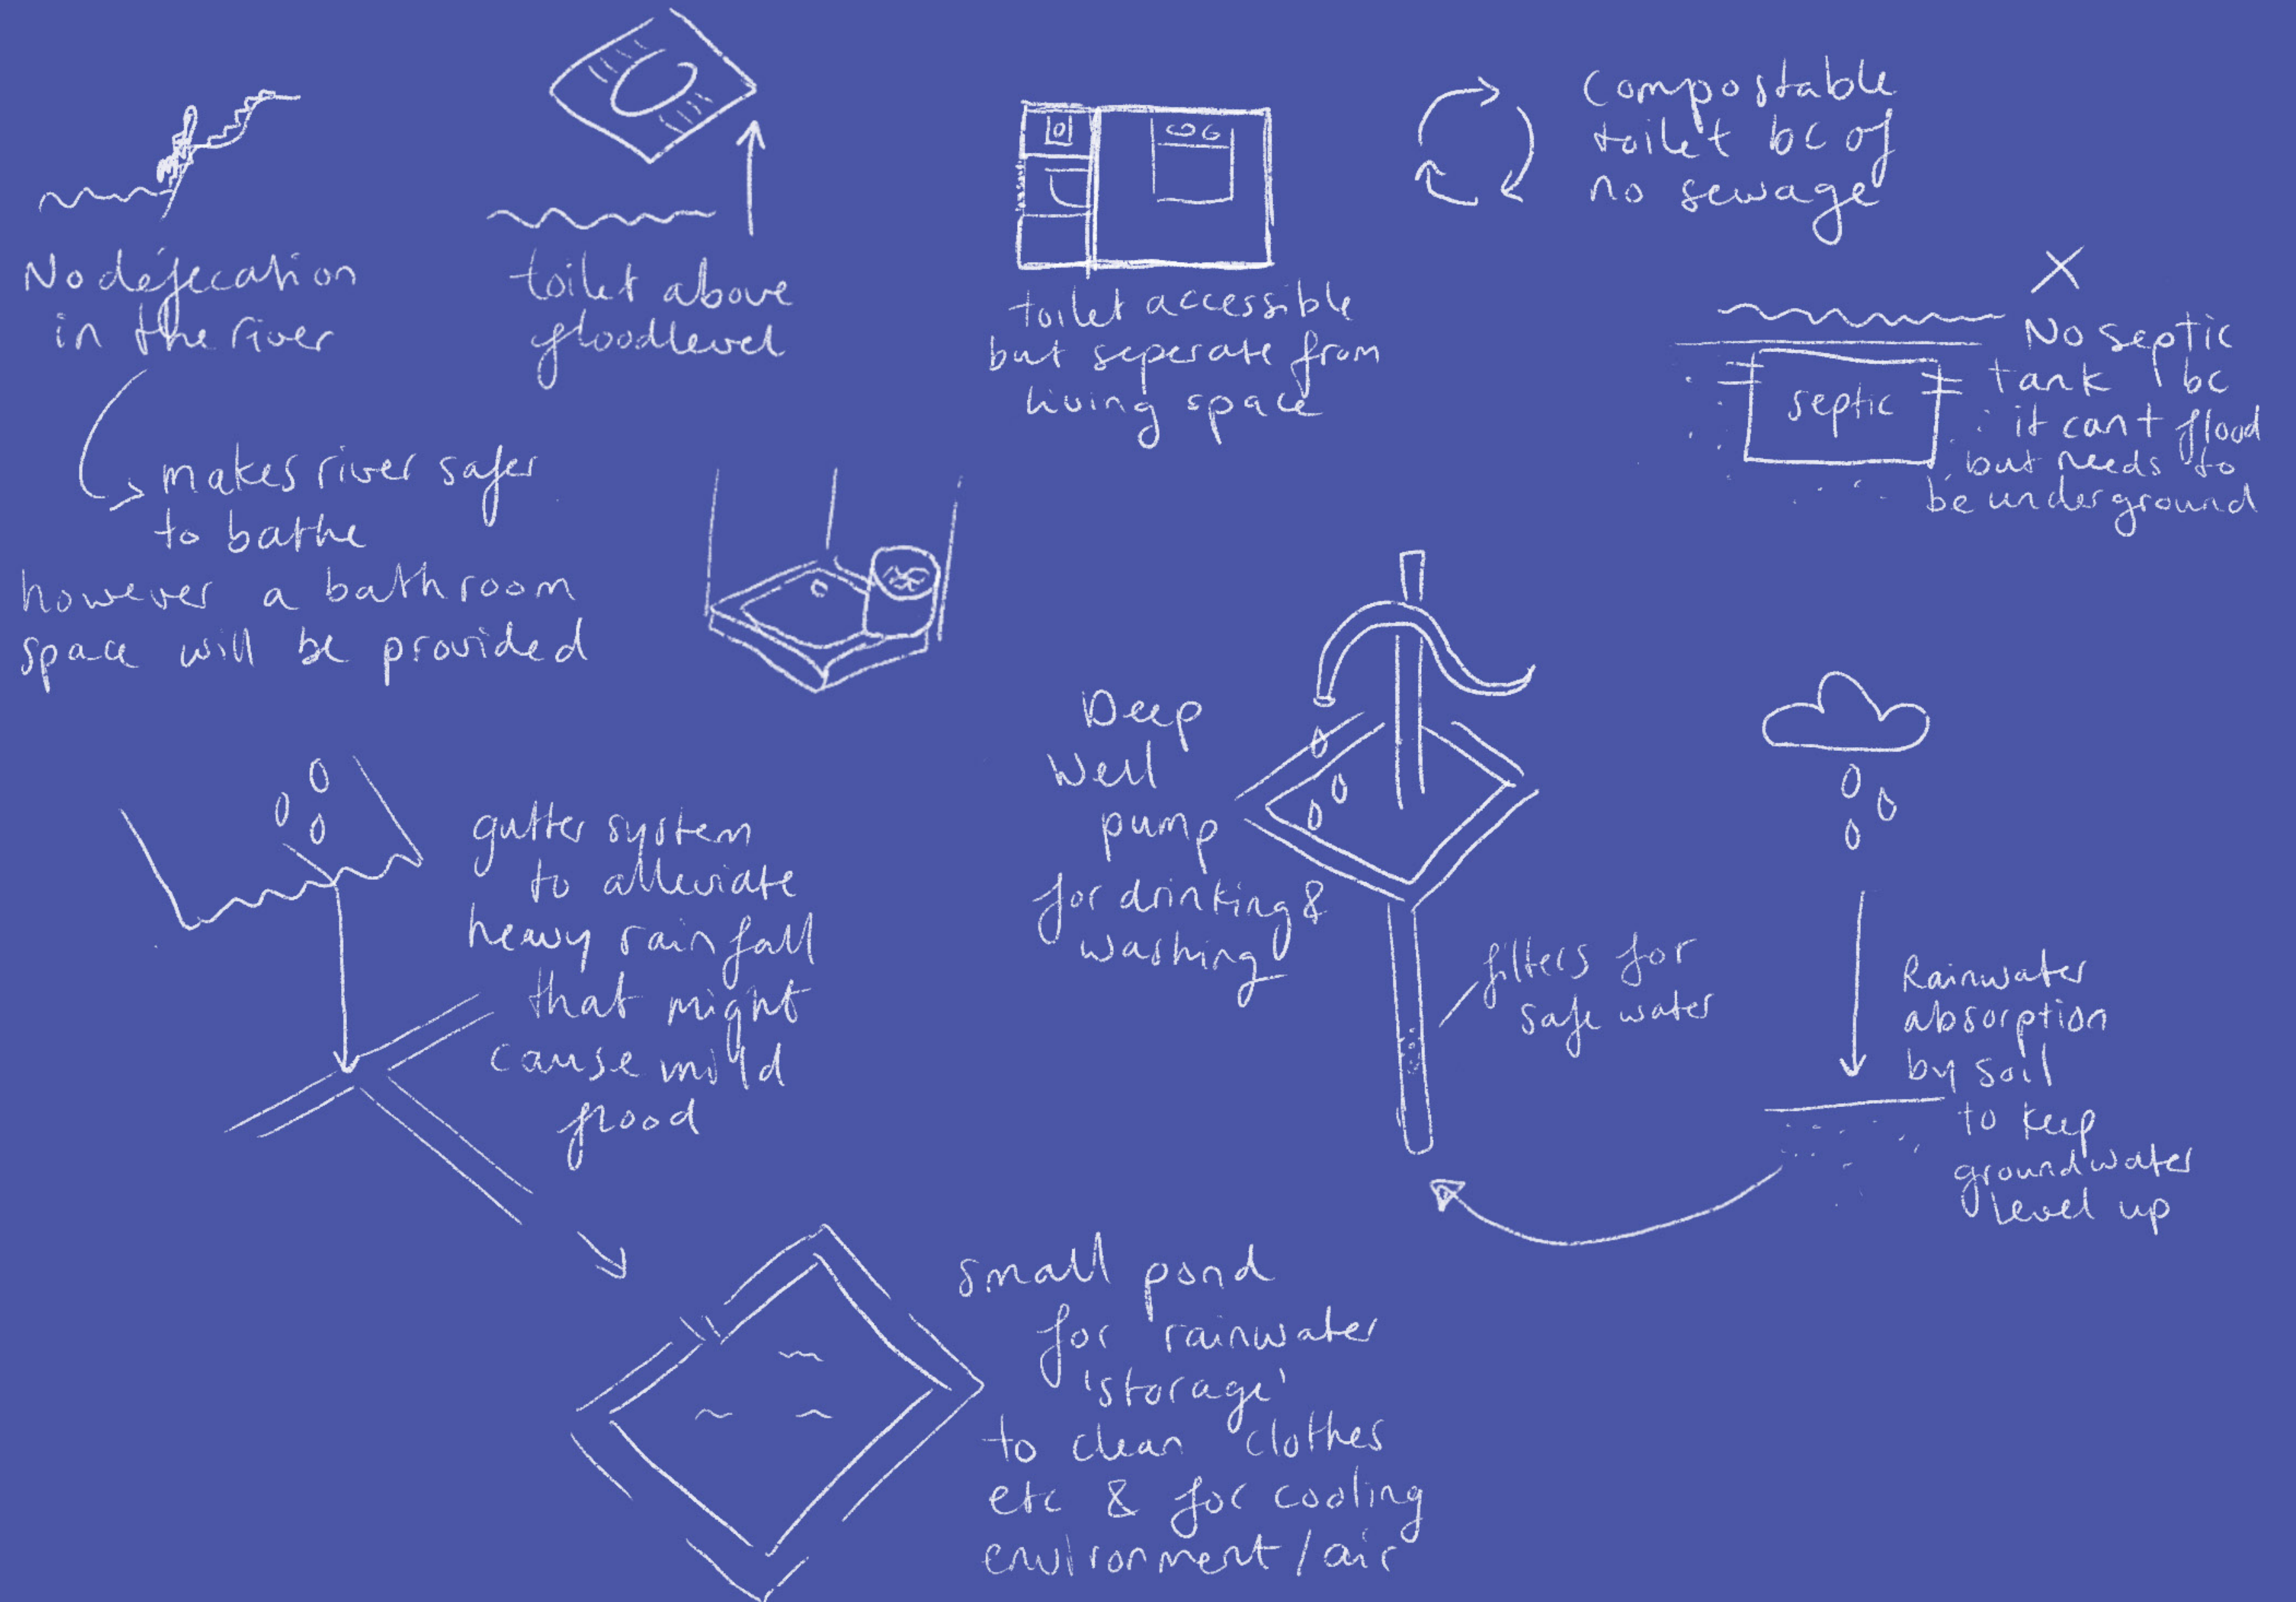 No defecation
in the river
makes river safer
to bathe
however a bathroom
space will be provided
toilet above
floodlevel
toilet accessible
but seperate from
living space
compostable
toilet bc of
no sewage
X
septic
No septic
tank bc
it cant flood
but needs to
be underground
gutter system
to alleviate
heavy rainfall
that might
cause mild
flood
Deep
Well
pump
for drinking &
washing
filters for
safe water
Rainwater
absorption
by soil
to keep
groundwater
level up
small pond
for rainwater
'storage'
to clean clothes
etc & for cooling
environment/air